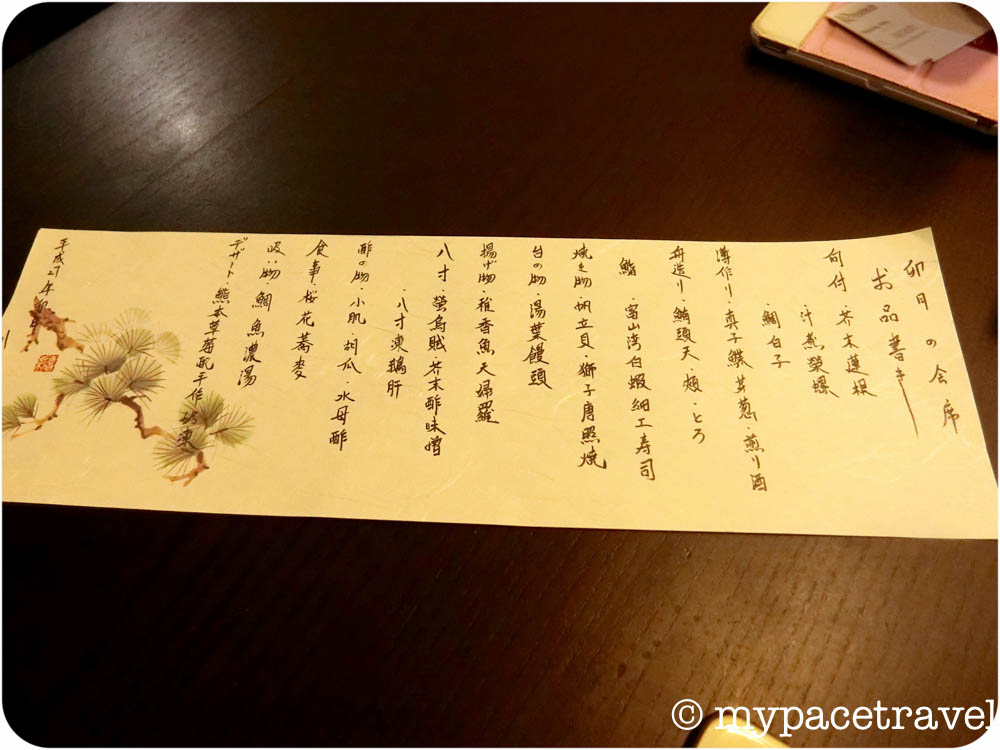 卯月の会席
お品書き
向付・芥末蓮根
・汁蒸榮螺
・鯛白子
薄作り・真子鰈芽葱・煎り酒
舟造り・鮪頭天・頬・とろ
鮨・富山湾白蝦細工寿司
焼き物・帆立貝・獅子唐照焼
台の物・湯葉饅頭
揚げ物・稚香魚天婦羅
八寸・螢烏賊・芥末酢味噌
・八寸凍鵝肝
酢の物・小肌・胡瓜・水母酢
食事・桜花蕎麥
吸い物・鯛魚濃湯
デザート・熊本草莓乳手作
平成27年
© mypacetravel